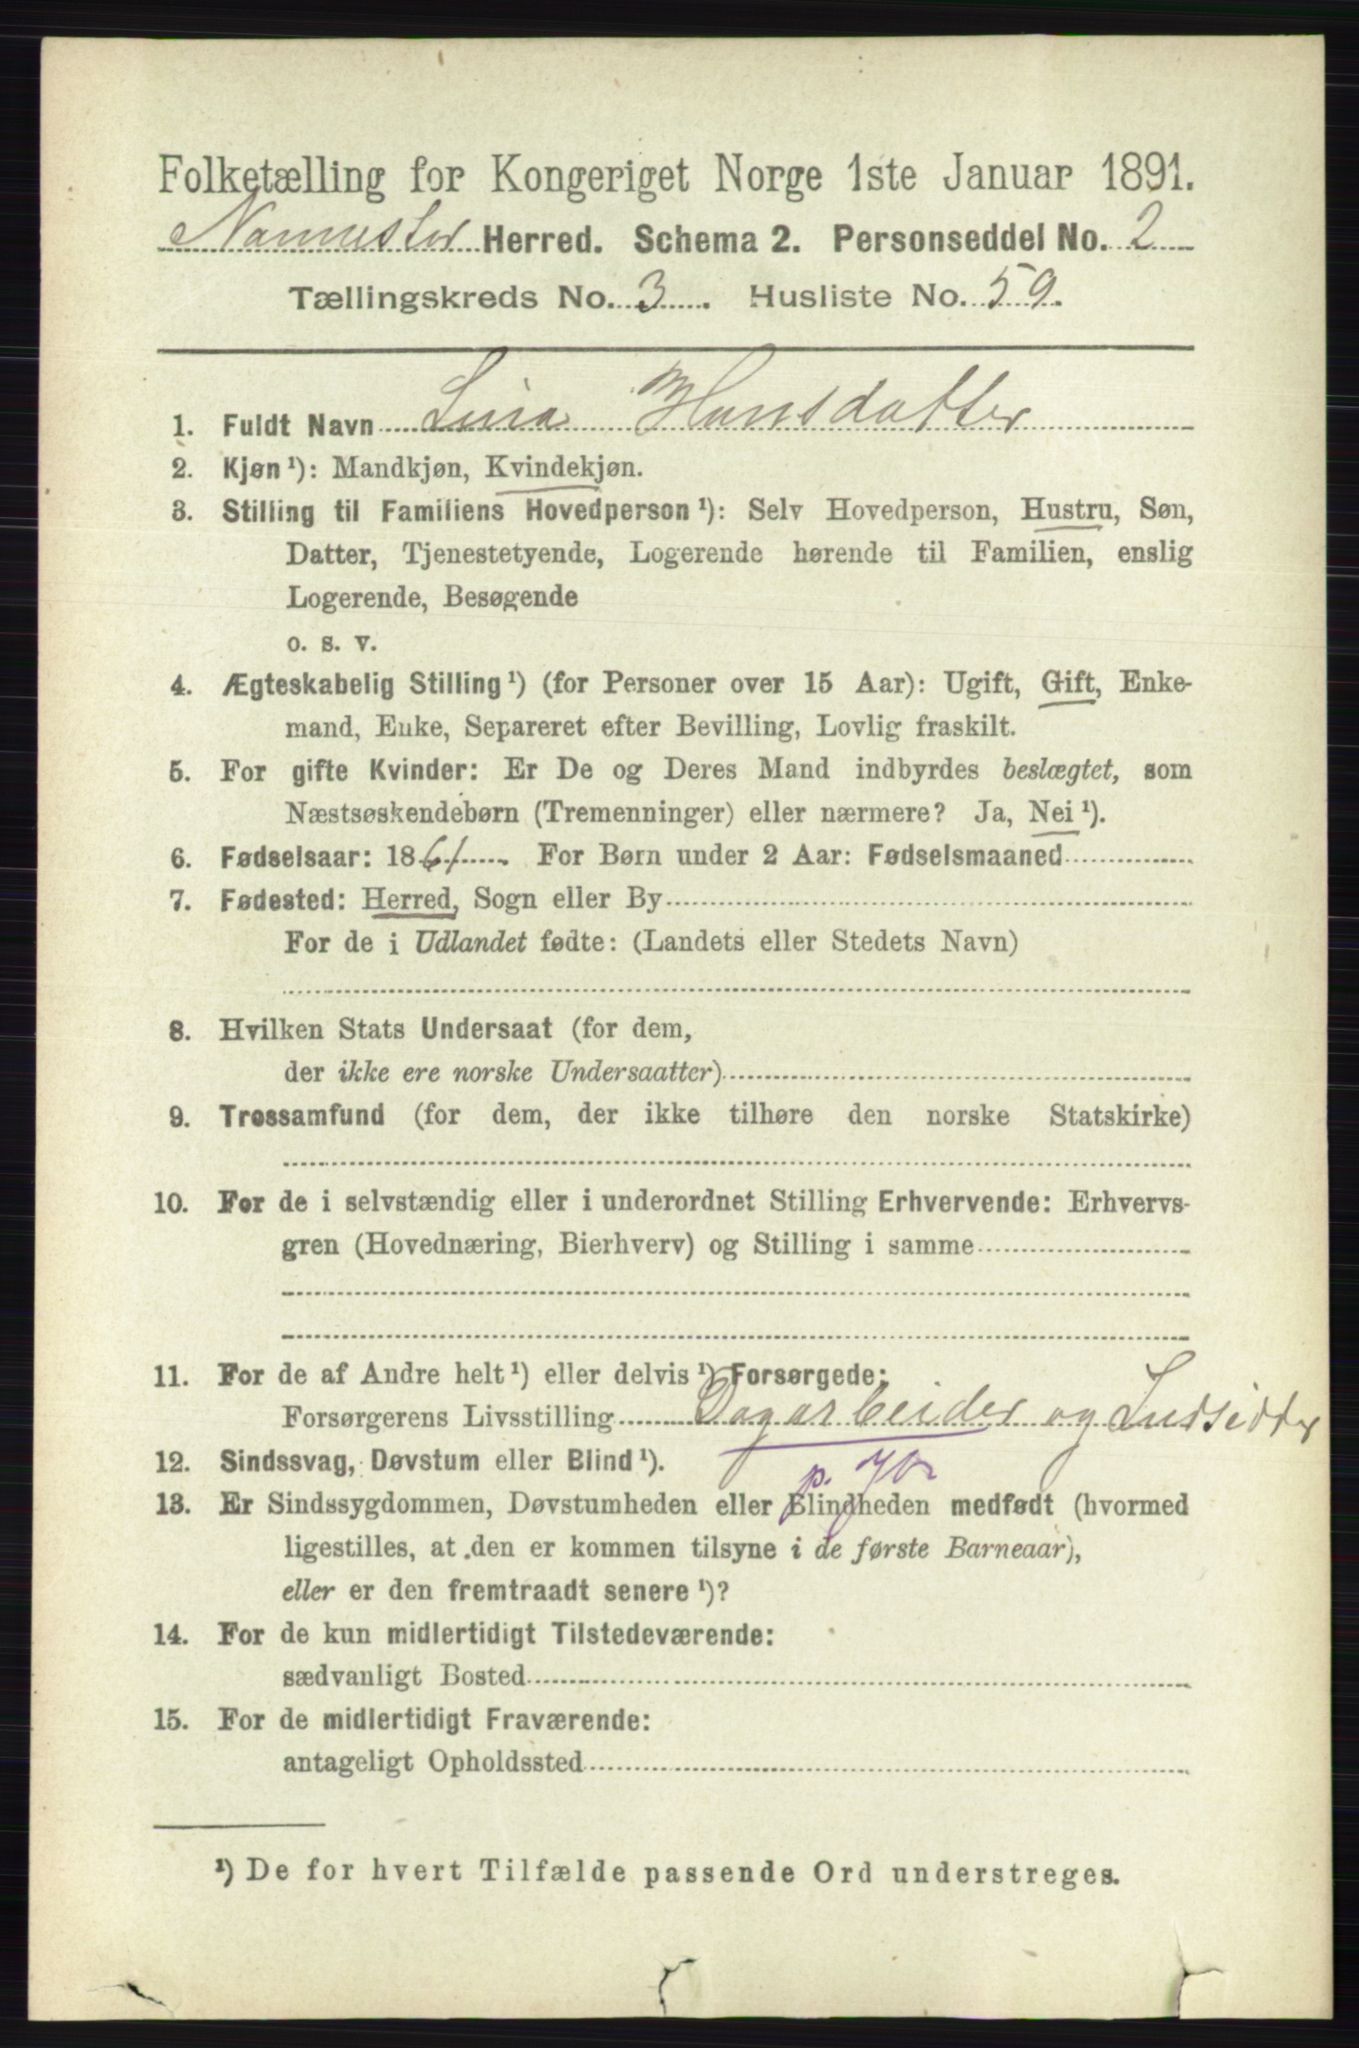 Folketælling for Kongeriget Norge 1ste Januar 1891.
Nannestad Herred. Schema 2. Personseddel No. 2
Tællingskreds No. 3. Husliste No. 59.
1. Fuldt Navn Lina Hansdatter
2. Kjøn¹): Mandkjøn, Kvindekjøn.
3. Stilling til Familiens Hovedperson¹): Selv Hovedperson, Hustru, Søn,
Datter, Tjenestetyende, Logerende hørende til Familien, enslig
Logerende, Besøgende
o. s. v.
4. Ægteskabelig Stilling¹) (for Personer over 15 Aar): Ugift, Gift, Enke-
mand, Enke, Separeret efter Bevilling, Lovlig fraskilt.
5. For gifte Kvinder: Er De og Deres Mand indbyrdes beslægtet, som
Næstsøskendebørn (Tremenninger) eller nærmere? Ja, Nei¹).
6. Fødselsaar: 1861. For Børn under 2 Aar: Fødselsmaaned
7. Fødested: Herred, Sogn eller By
For de i Udlandet fødte: (Landets eller Stedets Navn)
8. Hvilken Stats Undersaat (for dem,
der ikke ere norske Undersaatter)
9. Trossamfund (for dem, der ikke tilhøre den norske Statskirke)
10. For de i selvstændig eller i underordnet Stilling Erhvervende: Erhvervs-
gren (Hovednæring, Bierhverv) og Stilling i samme
11. For de af Andre helt¹) eller delvis¹) Forsørgede:
Forsørgerens Livsstilling Dagarbeider og Indsidder
12. Sindssvag, Døvstum eller Blind¹).
p. 70
13. Er Sindssygdommen, Døvstumheden eller Blindheden medfødt (hvormed
ligestilles, at den er kommen tilsyne i de første Barneaar),
eller er den fremtraadt senere¹)?
14. For de kun midlertidigt Tilstedeværende:
sædvanligt Bosted
15. For de midlertidigt Fraværende:
antageligt Opholdssted
¹) De for hvert Tilfælde passende Ord understreges.